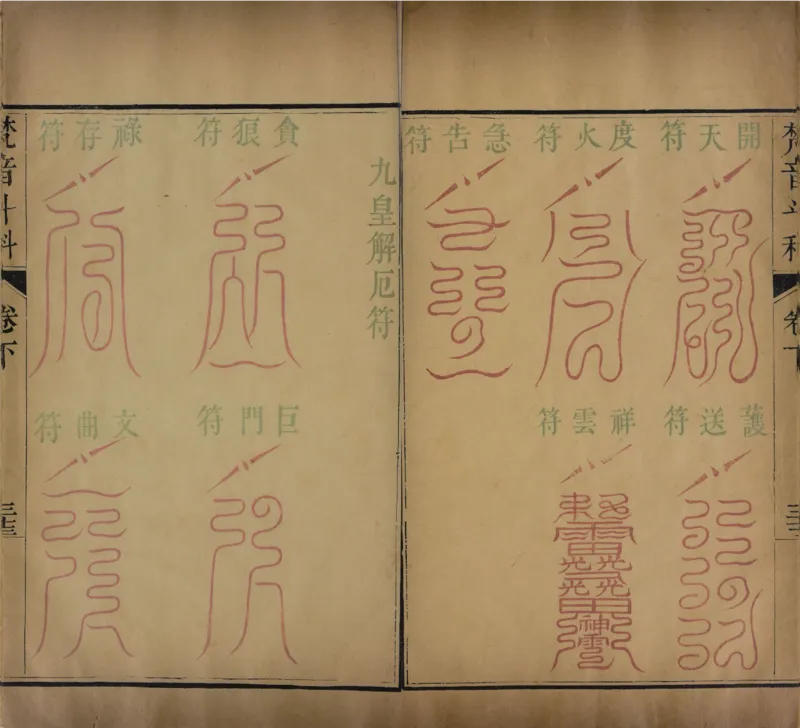 梵音斗科
卷下
開天符
度火符
急告符
䕶送符
祥雲符
九皇解厄符
貪狼符
祿存符
巨門符
文曲符
梵音斗科
卷下